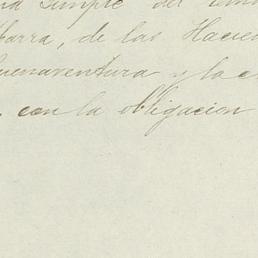 simple del
barra, de las Hacien
uenaventura y la c
con la obligacion